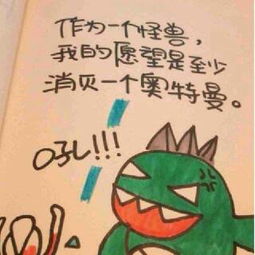 作为一个怪兽，
我的愿望是至少
消灭一个奥特曼。
吼!!!